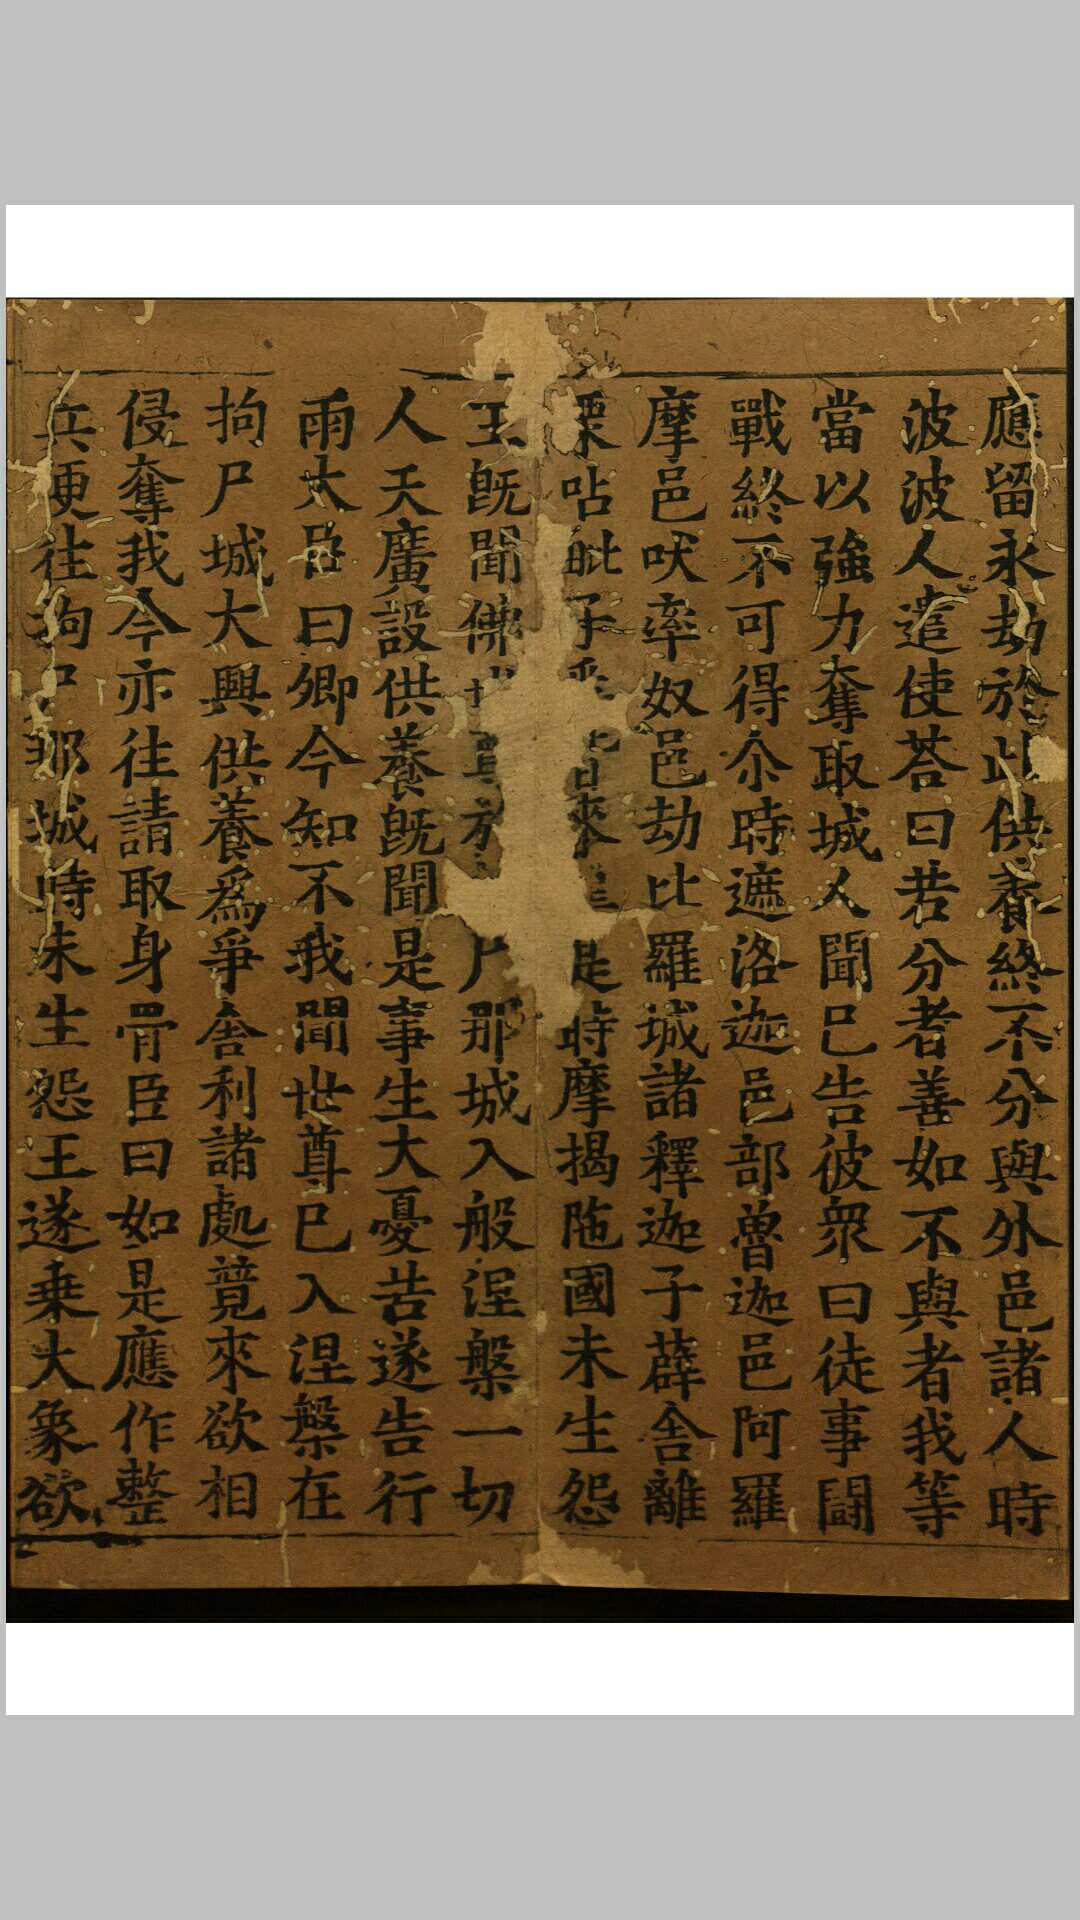 應留永劫於此供養終不分與外邑諸人時
波波人遣使荅曰若分者善如不與者我等
當以強力奪取城人聞已告彼眾曰徒事鬪
戰終不可得尒時遮洛迦邑部魯迦邑阿羅
摩邑吠率奴邑劫比羅城諸釋迦子薜舍離
栗呫毗子悉皆來 是時摩揭陁國未生怨
王既聞佛 尸那城入般涅槃一切
人天廣設供養既聞是事生大憂苦遂告行
雨大臣曰卿今知不我聞世尊已入涅槃在
拘尸城大興供養為爭舍利諸處竟來欲相
侵奪我今亦往請取身骨臣曰如是應作整
兵便往拘尸那城時未生怨王遂乘大象欲